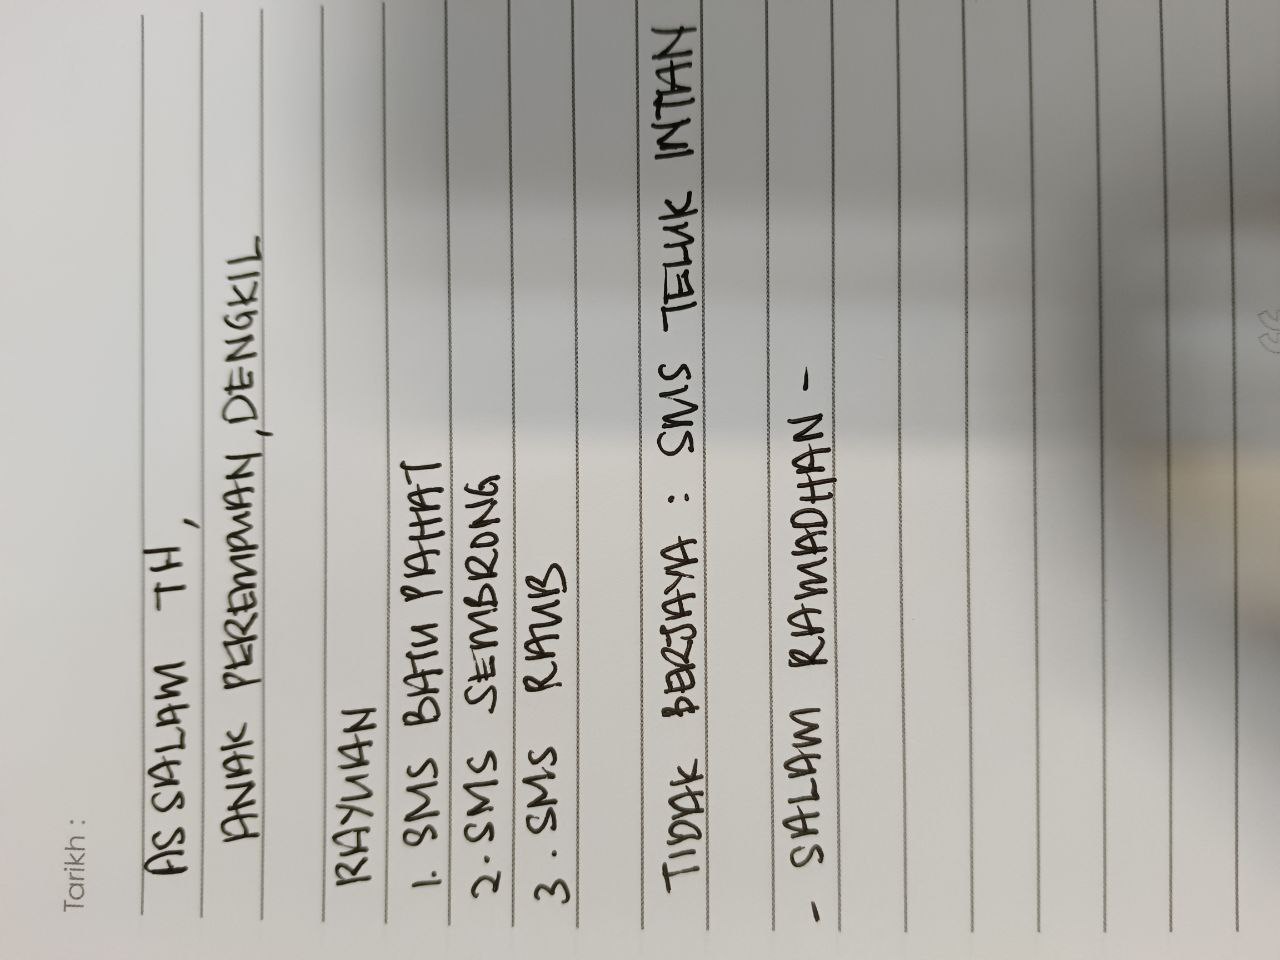 Tarikh :
AS SALAM TH,
ANAK PEREMPUAN, DENGKIL
RAYUAN
1. SMS BATU PAHAT
2. SMS SEMBRONG
3. SMS RAUB
TIDAK BERJAYA : SMS TELUK INTAN
- SALAM RAMADHAN -